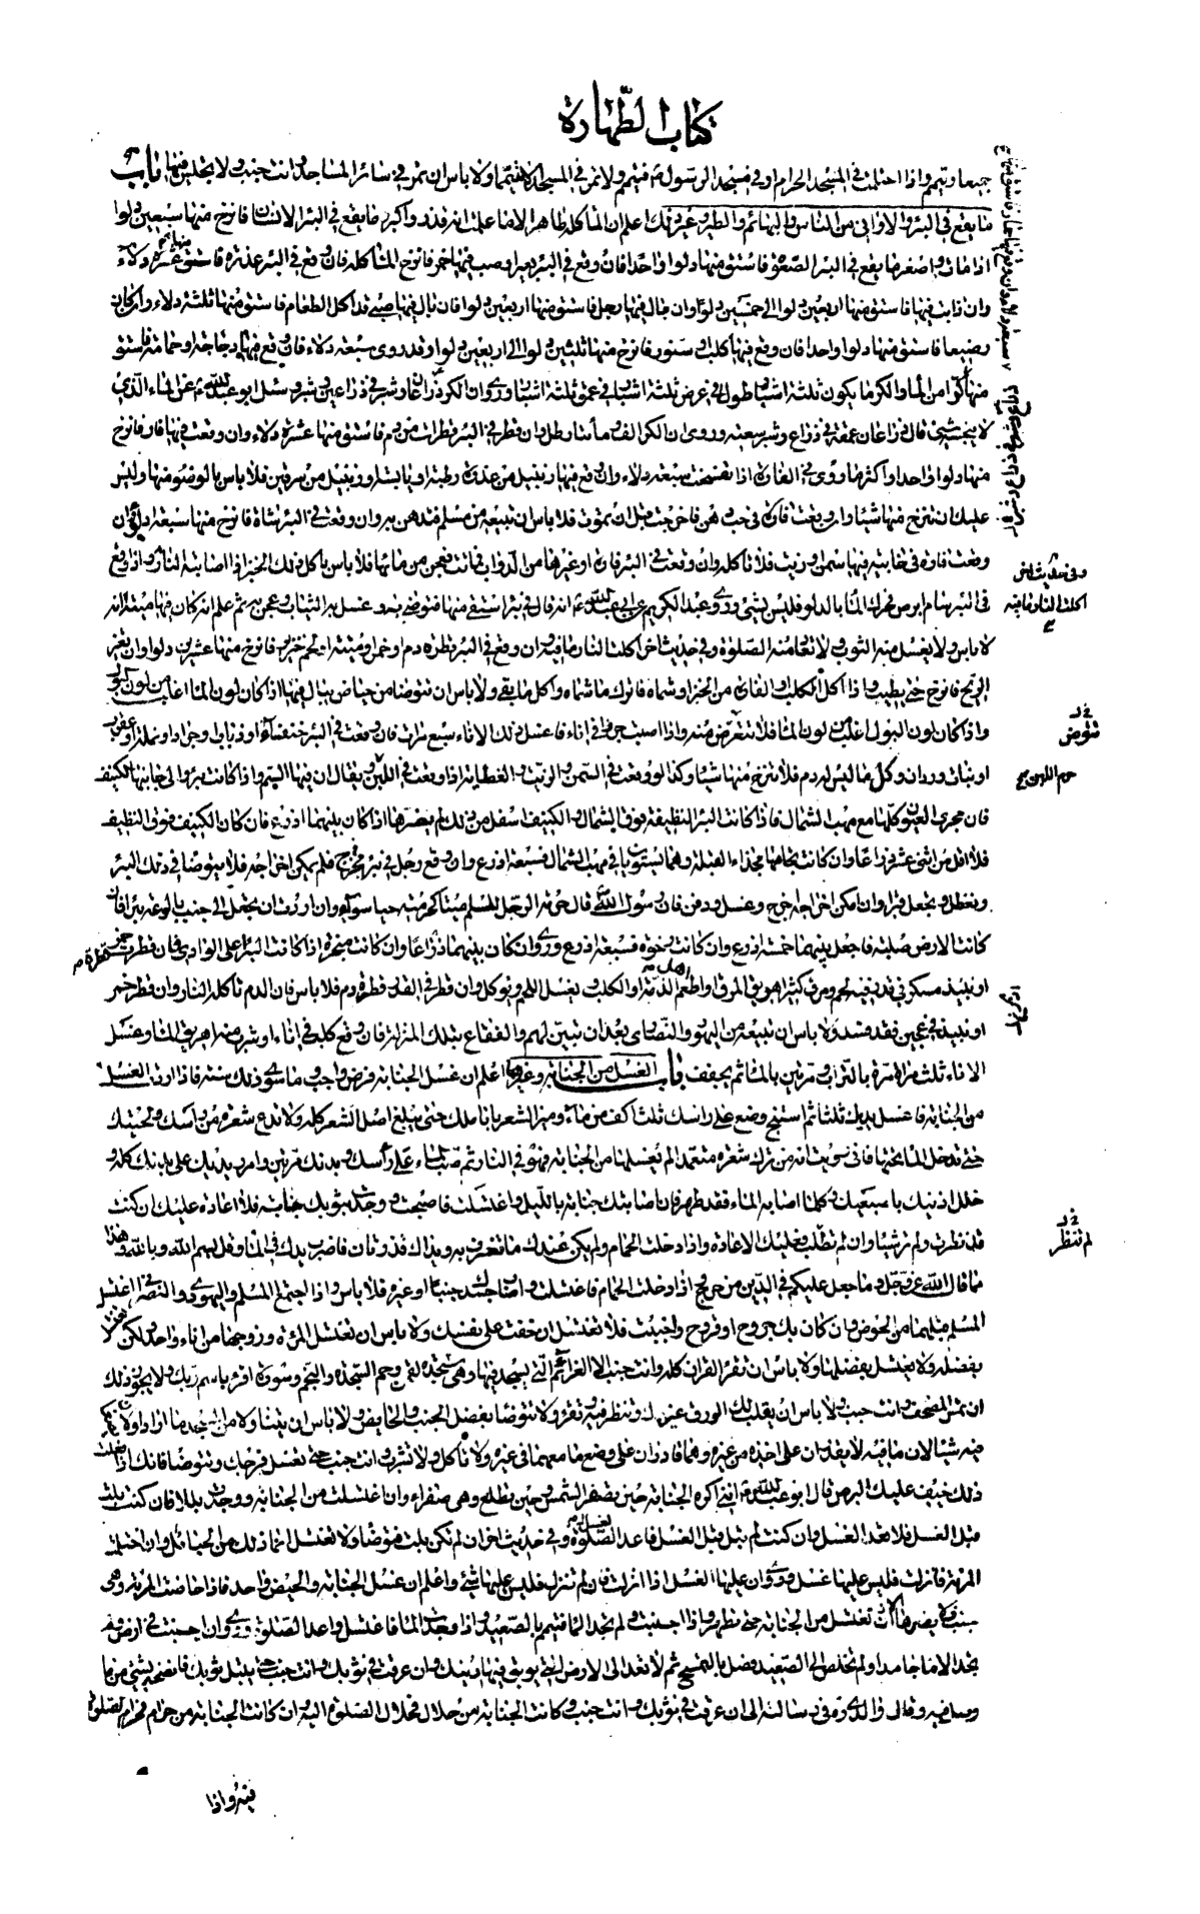 كتاب الطهارة
جميعا وتيمم واذا احتلمت في المسجد الحرام او في مسجد الرسول فتيمم ولا تمر في المسجد الا متيمما ولا باس ان تمر في سائر المساجد وانت جنب ولا تجلس فيها باب
ما يقع في البئر والاواني من الناس والبهائم والطير وغير ذلك اعلم ان الماء كله طاهر الا ما علمت انه قذر واكبر ما يقع في البئر الانسان فانزح منها سبعين دلوا
اذا مات واصغر ما يقع في البئر الصعوة فاستق منها دلوا واحدا فان وقع في البئر بعير او صب فيها خمر فانزح الماء كله فان وقع في البئر عذرة فاستق منها عشرة دلاء
وان ذابت فيها فاستق منها اربعين دلوا الى خمسين دلوا وان بال فيها رجل فاستق منها اربعين دلوا فان بال فيها صبي قد اكل الطعام فاستق منها ثلثة دلاء وان كان
رضيعا فاستق منها دلوا واحدا فان وقع فيها كلب او سنور فانزح منها ثلثين دلوا الى اربعين دلوا وقد روي سبعة دلاء فان وقع فيها دجاجة او حمامة فاستق
منها كرا من الماء والكر ما يكون ثلثة اشبار طول في عرض ثلثة اشبار في عمق ثلثة اشبار وروي ان الكر ذراعان وشبر في ذراعين وشبر وسئل ابو عبد الله عن الماء الذي
لا ينجسه شيء قال ذراعان عمقه في ذراع وشبر سعته وروي ان الكر الف ومائتا رطل وان قطر في البئر قطرات من دم فاستق منها عشرة دلاء وان وقعت فيها فارة فانزح
منها دلوا واحدا واكثر ما روي في الفارة اذا تفسخت سبعة دلاء وان وقع فيها زنبيل من عذرة رطبة او يابسة او زنبيل من سرقين فلا باس بالوضوء منها وليس
عليك ان تنزح منها شيئا وان وقعت فارة في حب دهن فاخرجت قبل ان تموت فلا باس ان تبيعه من مسلم وتدهن به وان وقعت في البئر شاة فانزح منها سبعة ادل وان
وقعت فارة في خابية فيها سمن او زيت فلا تاكله وان وقعت في البئر فارة او غيرها من الدواب فماتت فعجن من مائها فلا باس باكل ذلك الخبز اذا اصابته النار واذا وقع
في البئر سام ابرص فحرك الماء بالدلو فليس بشيء وروى عبد الكريم عن ابي عبد الله انه قال في بئر استقي منها فتوضئ به وغسل به الثياب وعجن به ثم علم انه كان فيها ميت انه
لا باس ولا يغسل منه الثوب ولا تعاد منه الصلوة وفي حديث اخر اكلت النار ما فيه وان وقع في البئر قطرة دم او خمر او ميتة او لحم خنزير فانزح منها عشرين دلوا وان تغير
الريح فانزح حتى يطيب واذا اكل الكلب او الفارة من الخبز او شماه فاترك ما شماه وكل ما بقي ولا باس ان تتوضا من حياض يبال فيها اذا كان لون الماء اغلب من لون البول
واذا كان لون البول اغلب من لون الماء فلا تتعرض منه واذا اصبت جرذا في اناء فاغسل ذلك الاناء سبع مرات فان وقعت في البئر خنفساء او ذباب او جراد او نملة او عقرب
او بنات وردان وكل ما ليس له دم فلا تنزح منها شيئا وكذا لو وقعت في السمن والزيت والعظاية اذا وقعت في اللبن ويقال ان فيها السم واذا كانت بئر والى جانبها الكنيف
فان مجرى العيون كلها مع مهب الشمال فاذا كانت البئر النظيفة فوق الشمال والكنيف اسفل من ذلك لم يضرها اذا كان بينهما اذرع فان كان الكنيف فوق النظيفة
فلا اقل من اثني عشر ذراعا وان كانت تجاهها بحذاء القبلة وهما يستويان في مهب الشمال فسبعة اذرع وان وقع رجل في بئر محرج فلم يمكن اخراجه فلا يتوضا في ذلك البئر
وتعطل ويجعل قبرا وان امكن اخراجه اخرج وغسل ودفن فان رسول الله قال حرمة الرجل المسلم ميتا كحرمته حيا سواء وان اردت ان تجعل الى جنب بالوعة بئرا فان
كانت الارض صلبة فاجعل بينهما خمسة اذرع وان كانت رخوة فسبعة اذرع وروي ان كان بينهما ذراعا وان كانت مبخرة اذا كانت البئر اعلى الوادي فان قطر خمر
او نبيذ مسكر في قدر فيه لحم ومرق كثير اهريق المرق او اطعم اهل الذمة او الكلب ويغسل اللحم ويؤكل وان قطر في القدر قطرة دم فلا باس فان الدم تاكله النار وان قطر خمر
او نبيذ في عجين فقد فسد ولا باس ان تبيعه من اليهود والنصارى بعد ان تبين لهم والفقاع بتلك المنزلة فان وقع كلب في اناء او شرب منه اهريق الماء وغسل
الاناء ثلث مرات مرة بالتراب ومرتين بالماء ثم يجفف باب الغسل من الجنابة وغيرها اعلم ان غسل الجنابة فرض واجب وما سوى ذلك سنة فاذا اردت الغسل
من الجنابة فاغسل يديك ثلثا ثم استنج وضع على راسك ثلث اكف من ماء وميز الشعر باناملك حتى يبلغ اصل الشعر كله ولا تدع شعرة من راسك ولحيتك
حتى تدخل الماء تحتها فاني رويت انه من ترك شعرة متعمدا لم يغسلها من الجنابة فهو في النار ثم صب الماء على راسك وبدنك مرتين وامرر يديك على بدنك كله و
خلل اذنيك باصبعيك وكلما اصابه الماء فقد طهر فان اصابتك جنابة بالليل واغتسلت فاصبحت ووجدت بثوبك جنابة فلا اعادة عليك ان كنت
قد نظرت ولم تر شيئا وان لم تطلب فعليك الاعادة واذا دخلت الحمام ولم يكن عندك ما تغرف به ويداك قذرتان فاضرب يدك في الماء وقل بسم الله وبالله وهذا
مما قال الله عز وجل وما جعل عليكم في الدين من حرج واذا دخلت الحمام فاغتسلت واصاب جسدك جنبا او غيره فلا باس واذا اجتمع المسلم واليهودي والنصراني اغتسل
المسلم قبلهما من الحوض فان كان بك جروح او قروح واجنبت فلا تغتسل ان خفت على نفسك ولا باس ان تغتسل المرءة وزوجها من اناء واحد ولكن تغتسل
بفضله ولا يغتسل بفضلها ولا باس ان تقرء القران كله وانت جنب الا العزائم التي يسجد فيها وهي سجدة لقمن وحم السجدة والنجم وسورة اقرء باسم ربك ولا يجوز ذلك
ان تمس المصحف وانت جنب ولا باس ان يقلب لك الورق غيرك وتنظر فيه وتقرء ولا تتوضا بفضل الجنب والحايض ولا باس ان يتناولا من المسجد ما ارادا ولا
فيه شيئا لان ما فيه لا يقدران على اخذه من غيره وهما قادران على وضع ما معهما في غيره ولا تاكل ولا تشرب وانت جنب حتى تغسل فرجك وتتوضا فانك اذا فعلت
ذلك خيف عليك البرص قال ابو عبد الله اني اكره الجنابة حين تصفر الشمس وحين تطلع وهي صفراء وان اغتسلت من الجنابة ووجدت بللا فان كنت بلت
قبل الغسل فلا تعد الغسل وان كنت لم تبل قبل الغسل فاعد الغسل وفي حديث اخر ان لم تكن بلت فتوضا ولا تغتسل انما ذلك من الحبائل وان احتلمت
المرءة فانزلت فليس عليها غسل وروي ان عليها الغسل اذا انزلت فان لم تنزل فليس عليها شيء واعلم ان غسل الجنابة والحيض واحد فاذا حاضت المرءة وهي
جنب فلا يضرها ان تغتسل من الجنابة حتى تطهر واذا اجنبت ولم تجد الماء فتيمم بالصعيد واذا وجدت الماء فاغتسل واعد الصلوة وروي ان اجنبت في ارض ولم
تجد الا ماء جامدا ولم تخلص الى الصعيد فصل بالتمسح ثم لا تعد الى الارض التي يوبق فيها دينك وان عرقت في ثوبك وانت جنب حتى يبتل ثوبك فانضحه بشيء من ماء
وصل فيه وقال والدي في رسالته الي ان عرقت في ثوبك وانت جنب وكانت الجنابة من حلال فحلال الصلوة فيه وان كانت الجنابة من حرام فحرام الصلوة
فيه واذا
وفي حديث اخر
اكلت النار ما فيه
تتوض
لم تنظر